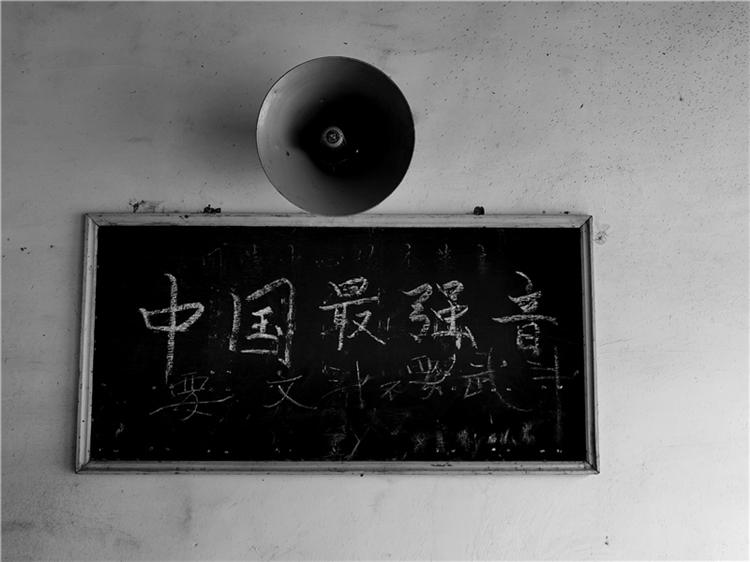 中国最强音
要文斗不要武斗